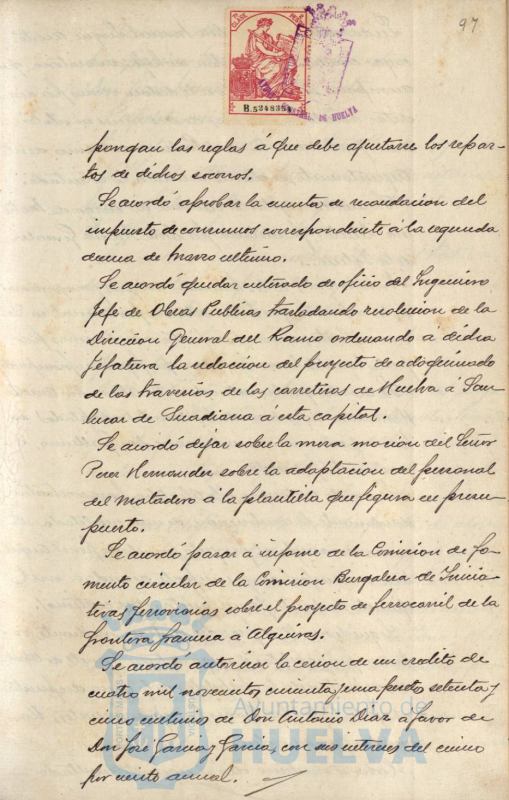 97
B.5248354
DE HUELVA
pongan las reglas á que debe ajustarse los repar-
tos de dichos socorros.
Se acordó aprobar la cuenta de recaudacion del
impuesto de consumos correspondiente á la segunda
decena de Marzo ultimo.
Se acordó quedar enterado de oficio del Ingeniero
Jefe de Obras Publicas trasladando resolucion de la
Direccion General del Ramo ordenando a dicha
Jefatura la redaccion del proyecto de adoquinado
de las travesias de las carreteras de Huelva á San-
lucar de Guadiana á esta capital.
Se acordó dejar sobre la mesa mocion del Señor
Perez Hernandez sobre la adaptacion del personal
del Matadero á la plantilla que figura en presu-
puesto.
Se acordó pasar á informe de la Comision de Fo-
mento circular de la Comision Burgalesa de Inicia-
tivas ferroviarias sobre el proyecto de ferrocarril de la
frontera francesa á Algeciras.
Se acordó autorizar la cesion de un credito de
cuatro mil novecientas cincuenta y una pesetas setenta y
cinco centimos de Don Antonio Diaz á favor de
Don José Garcia y Garcia, con sus intereses del cinco
por ciento annual.
Ayuntamiento de
HUELVA